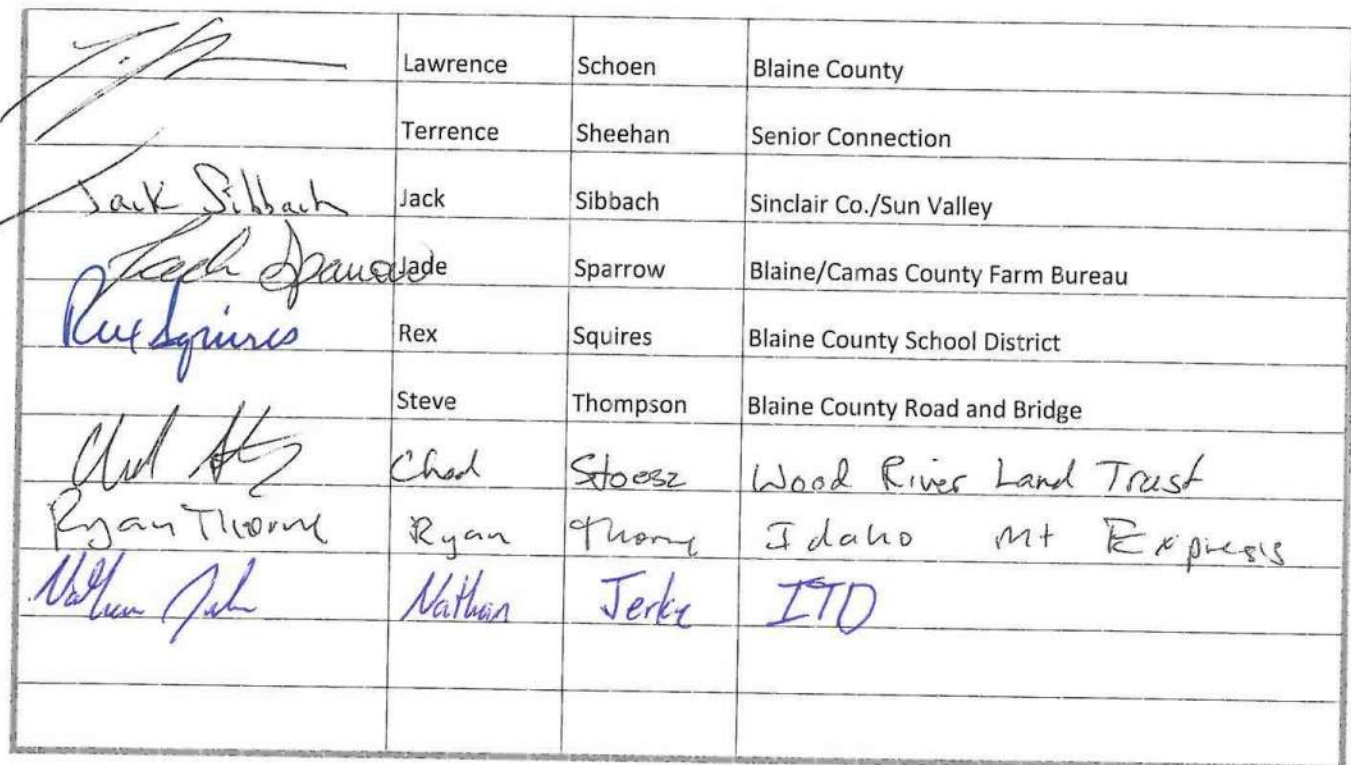 Lawrence Schoen Blaine County
Terrence Sheehan Senior Connection
Jack Sibbach Jack Sibbach Sinclair Co./Sun Valley
Jade Sparrow Blaine/Camas County Farm Bureau
Rex Squires Rex Squires Blaine County School District
Steve Thompson Blaine County Road and Bridge
Chad Stoesz Wood River Land Trust
Ryan Thorne Ryan Thorne Idaho Mt Express
Nathan Jerke ITD